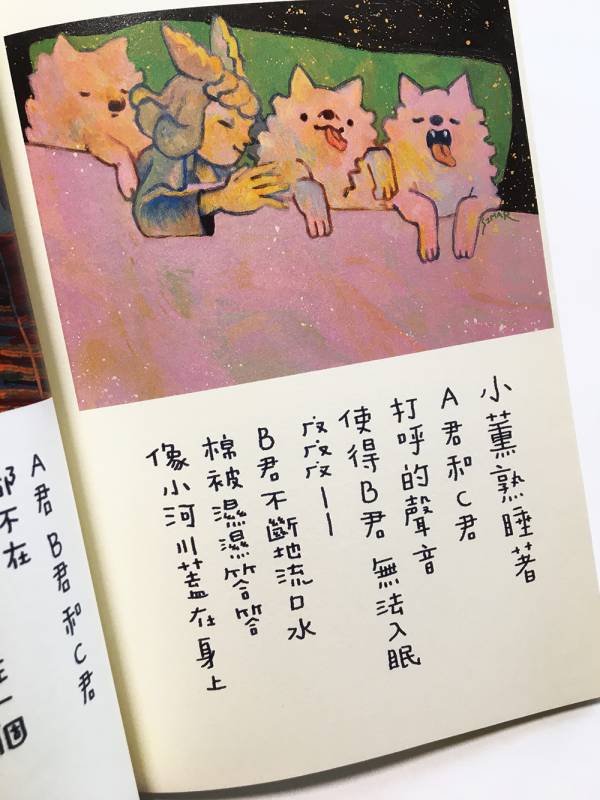 小薰熟睡著
A君和C君
打呼的聲音
使得B君 無法入眠
ㄆㄆㄆ——
B君不斷地流口水
棉被濕濕答答
像小河川蓋在身上
A君 B君 和 C君
都不在
一個